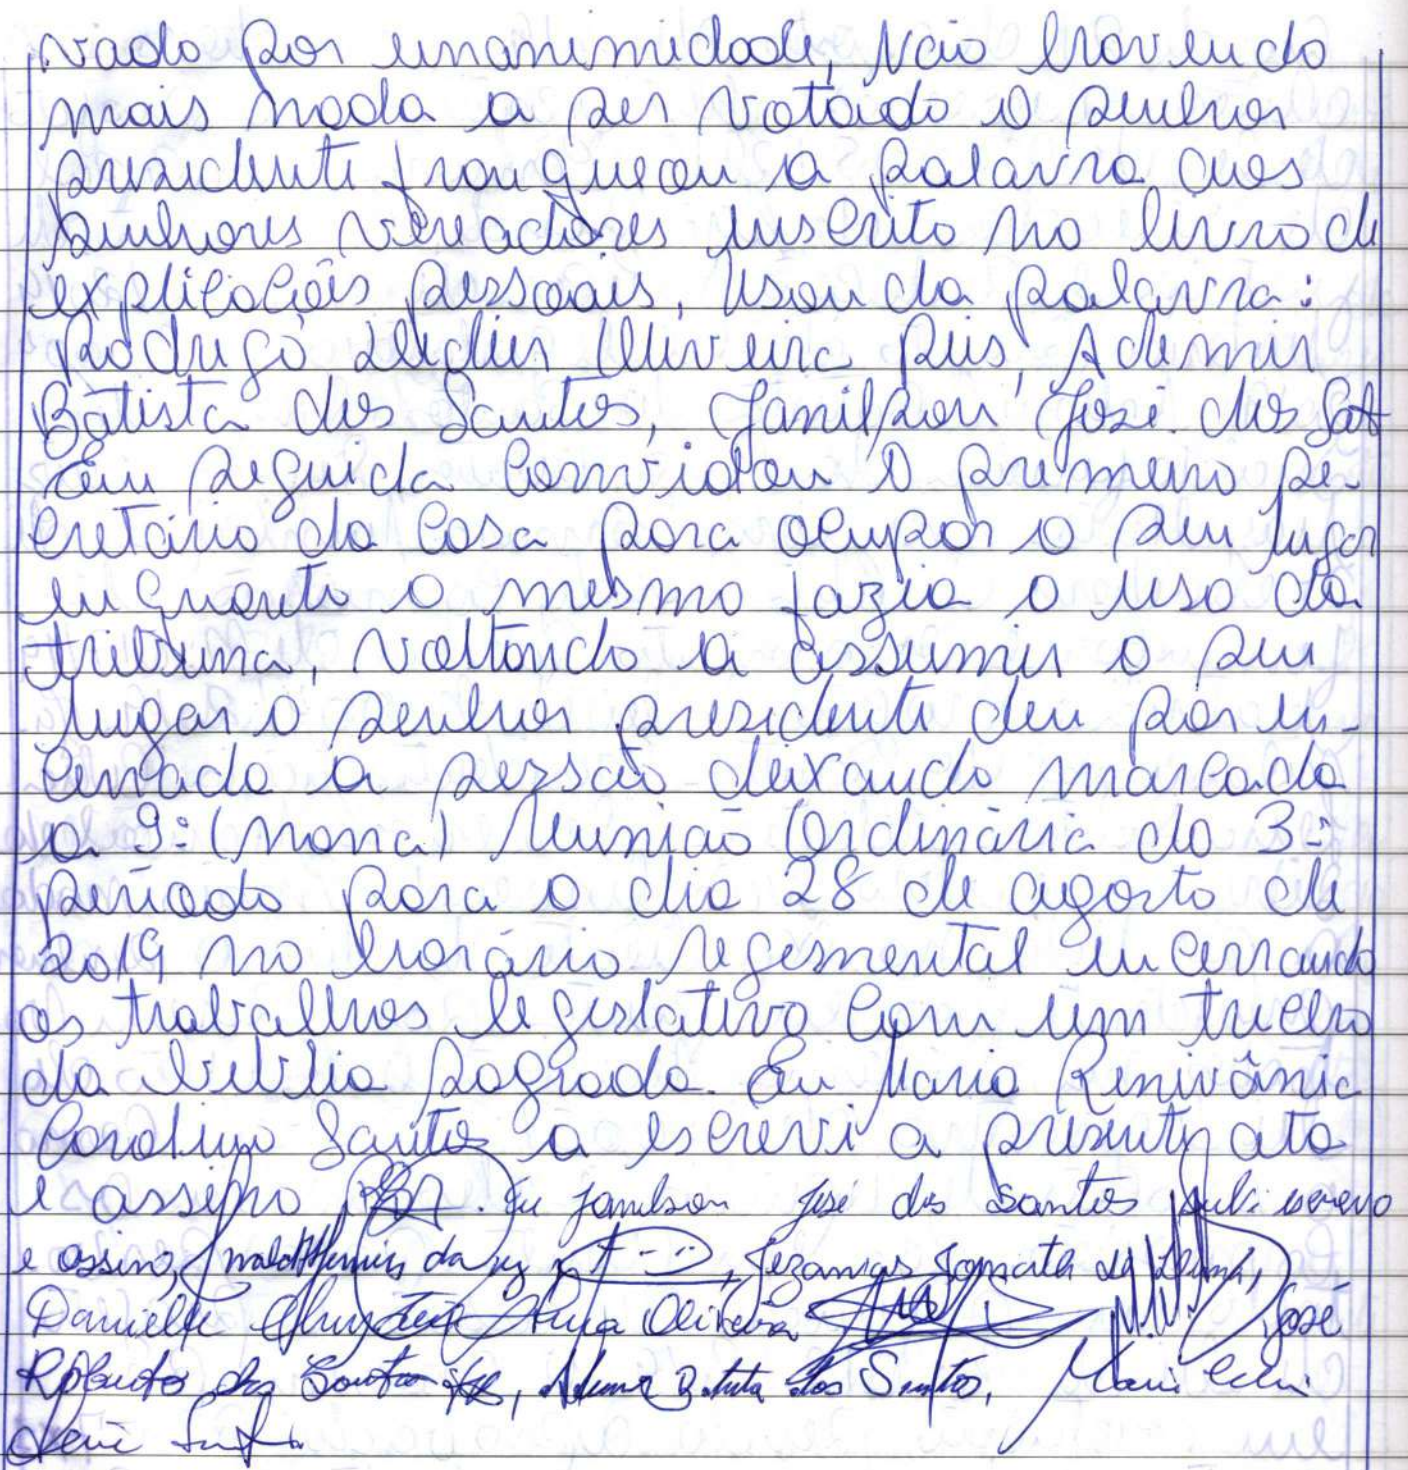 vado por unanimidade, Não havendo
mais nada a ser votado o senhor
presidente franqueou a palavra aos
senhores vereadores inscrito no livro de
explicações pessoais, usou da palavra:
Rodrigo Oliveira Reis, Ademir
Batista dos Santos, Janilson José dos Sat
Em seguida convidou o primeiro se-
cretário da casa para ocupar o seu lugar
enquanto o mesmo fazia o uso da
tribuna, voltando a assumir o seu
lugar o senhor presidente deu por en-
cerrada a sessão deixando marcada
a 9ª (nona) Reunião Ordinária do 3º
período para o dia 28 de agosto de
2019 no horário regimental encerrando
os trabalhos legislativo com um trecho
da bíblia sagrada. Eu Maria Renivânia
Carolino Santos a escrevi a presente ata
e assino. Eu Jamilson José dos Santos
e assino, da
Danielle Oliveira José
Roberto dos Santos, Batista dos Santos, Maria